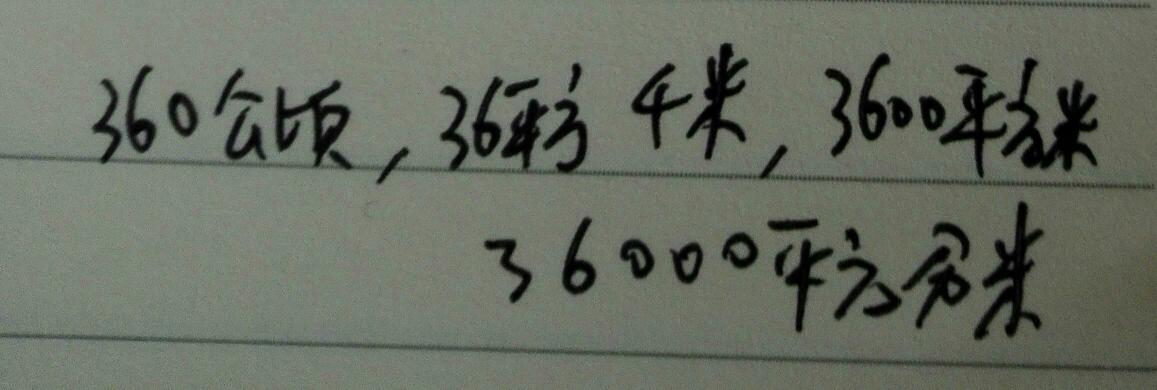 360公顷,36平方千米,3600平方米
36000平方分米